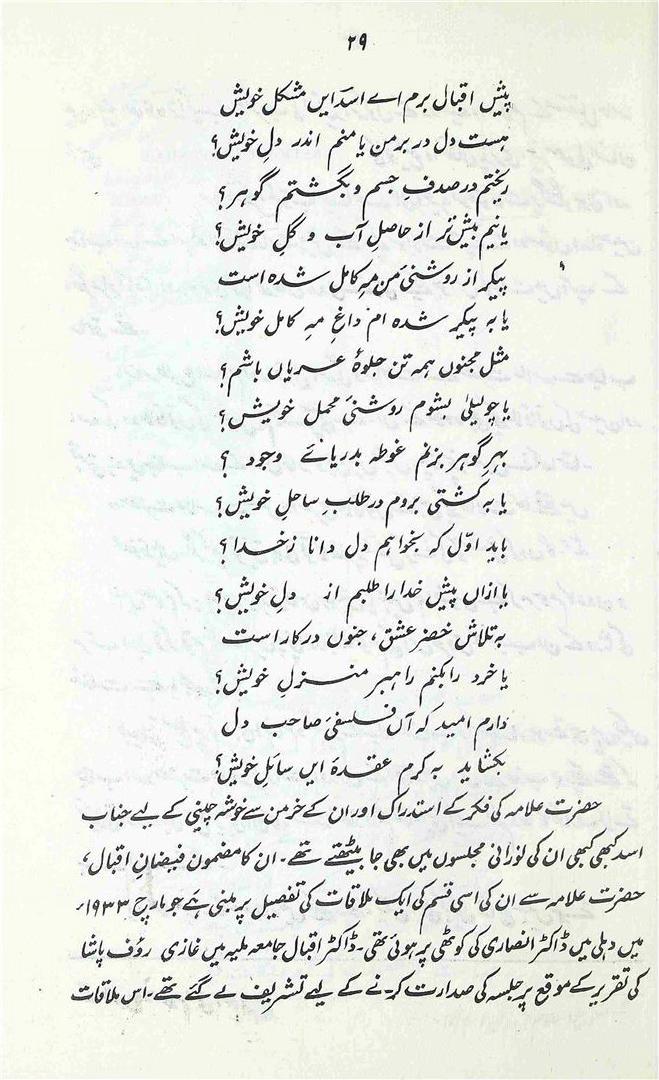 ۲۹
پیش اقبال برم اے اسد ایں مشکل خویش
ہست دل در برمن یا منم اندر دلِ خویش؟
ریختم در صدف جسم و بگشتم گوہر؟
یا نیم بیش تر از حاصلِ آب و گلِ خویش؟
پیکر از روشنیِٔ من مہِ کامل شدہ است
یا بہ پیکر شدہ ام داغِ مہِ کامل خویش؟
مثل مجنوں ہمہ تن جلوۂ عریاں باشم؟
یا چو لیلیٰ بشوم روشنیِٔ محمل خویش؟
بہرِ گوہر بزنم غوطہ بدریائے وجود ؟
یا بہ کشتی بروم در طلبِ ساحلِ خویش؟
باید اوّل کہ بخواہم دل دانا ز خدا؟
یا ازاں پیش خدارا طلبم از دلِ خویش؟
بہ تلاش خضر عشق، جنوں درکار است
یا خرد را بکنم راہبر منزلِ خویش؟
دارم امید کہ آں فلسفیٔ صاحب دل
بکشاید بہ کرم عقدۂ ایں سائلِ خویش؟
حضرت علامہ کی فکر کے استدراک اور ان کے خرمن سے خوشہ چینی کے لیے جناب
اسد کبھی کبھی ان کی نورانی مجلسوں میں بھی جا بیٹھتے تھے۔ ان کا مضمون فیضانِ اقبال،
حضرت علامہ سے ان کی اسی قسم کی ایک ملاقات کی تفصیل پر مبنی ہے جو مارچ ۱۹۳۳ء
میں دہلی میں ڈاکٹر انصاری کی کوٹھی پر ہوئی تھی۔ ڈاکٹر اقبال جامعہ ملیہ میں غازی رؤف پاشا
کی تقریر کے موقع پر جلسہ کی صدارت کرنے کے لیے تشریف لے گئے تھے۔ اس ملاقات